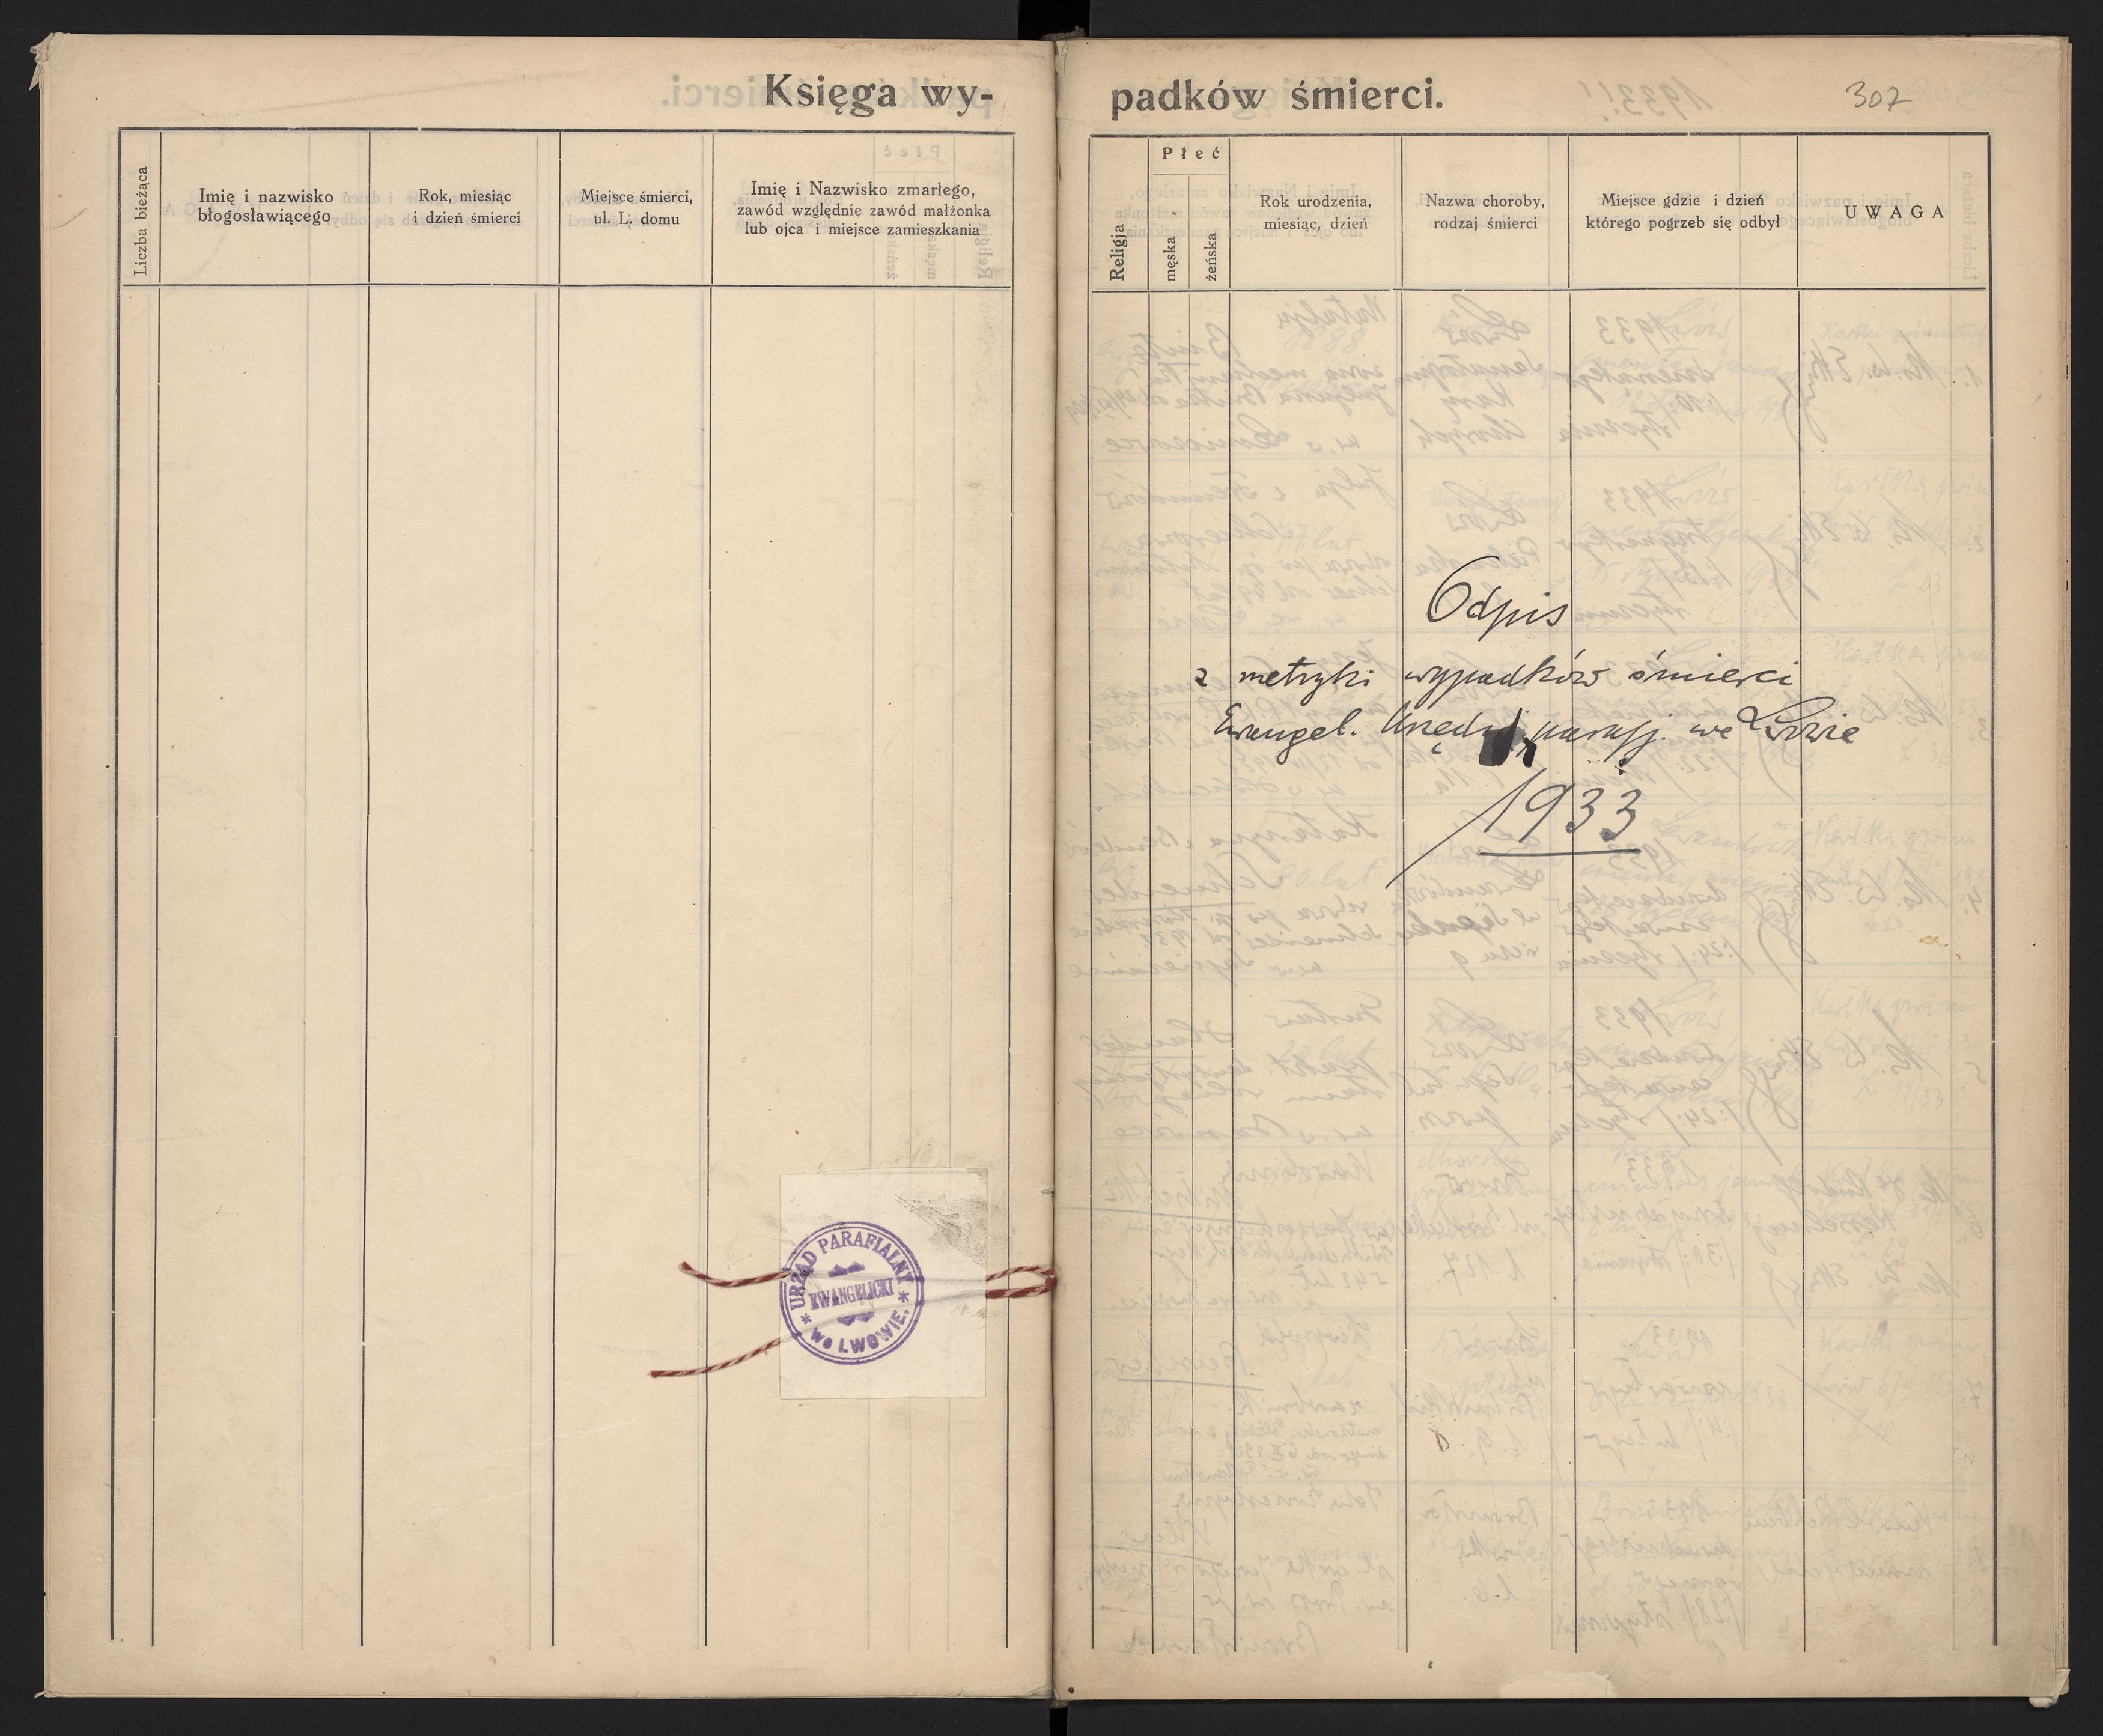 Księga wy-
Liczba bieżąca
Imię i nazwisko
błogosławiącego
Rok, miesiąc
i dzień śmierci
Miejsce śmierci,
ul. L. domu
Imię i Nazwisko zmarłego,
zawód względnie zawód małżonka
lub ojca i miejsce zamieszkania
URZĄD PARAFIALNY
EWANGELICKI
* we LWOWIE. *
padków śmierci.
307
Religja
Płeć
męska
żeńska
Rok urodzenia,
miesiąc, dzień
Nazwa choroby,
rodzaj śmierci
Miejsce gdzie i dzień
którego pogrzeb się odbył
UWAGA
Odpis
z metryki wypadków śmierci
Ewangel. Urzędu parafj. we Lwowie
1933